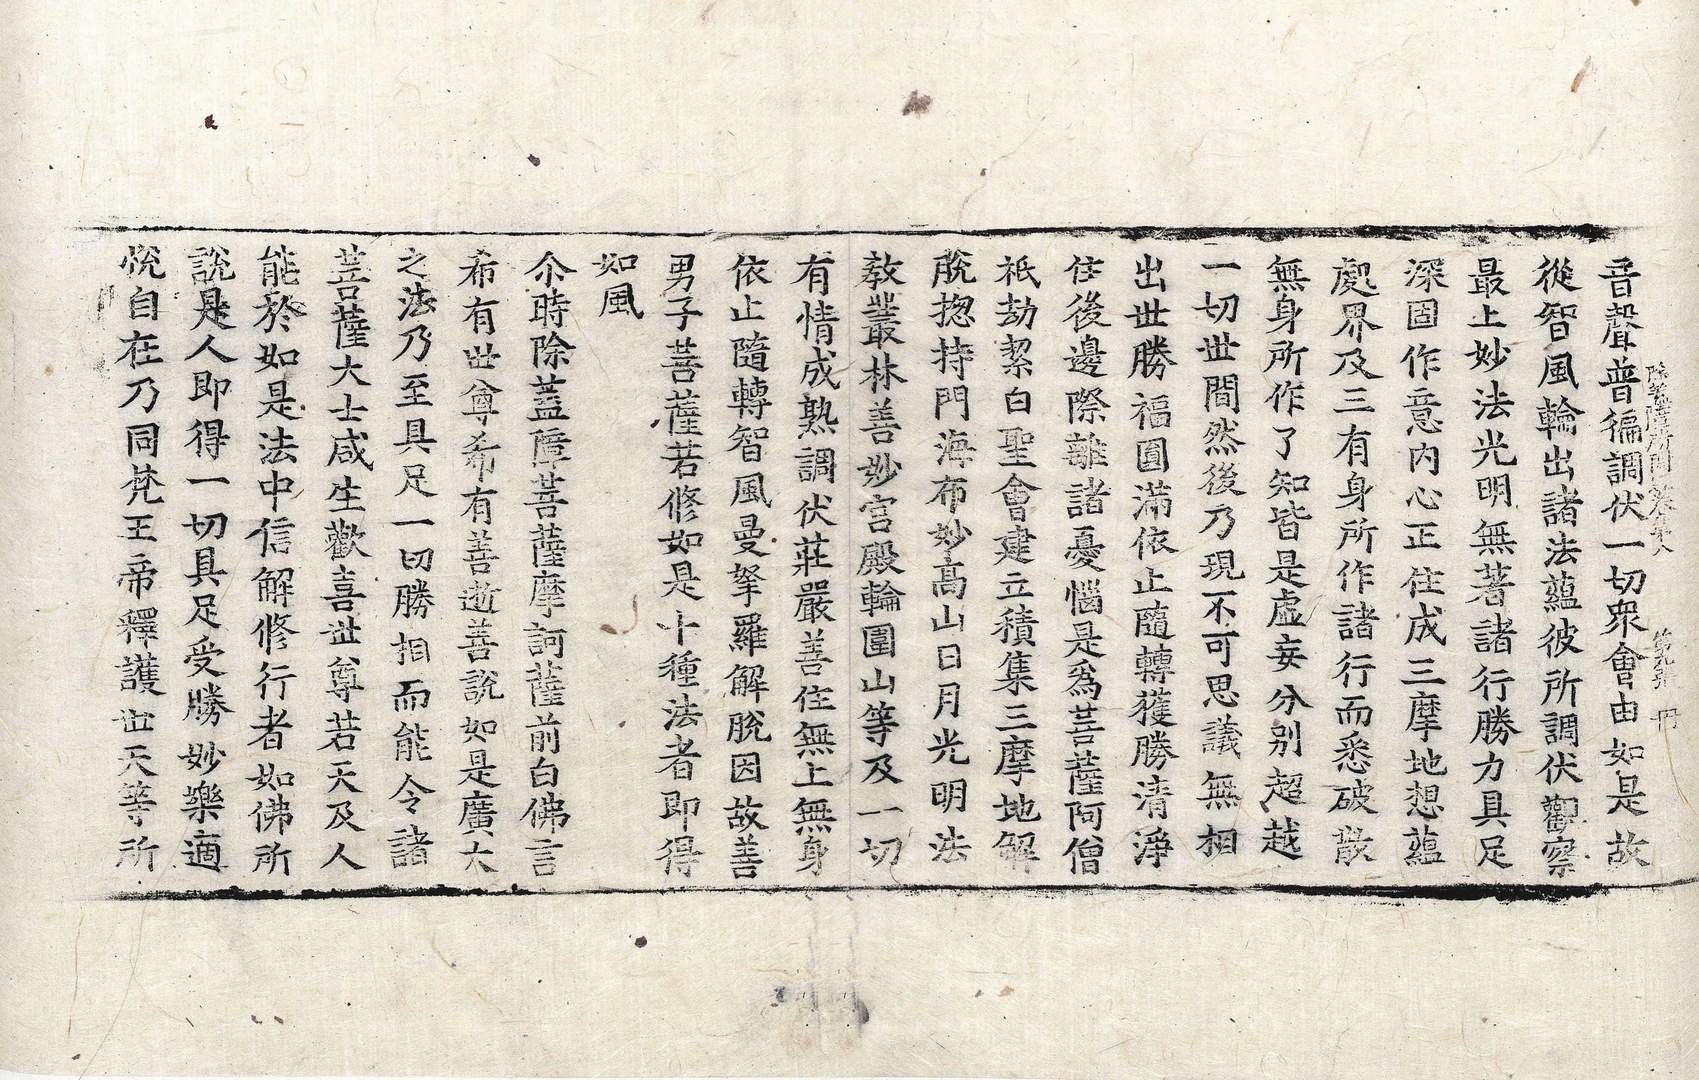 除蓋障所問卷第八　第九張　冊
音聲普徧調伏一切衆會由如是故
從智風輪出諸法蘊彼所調伏觀察
最上妙法光明無著諸行勝力具足
深固作意内心正住成三摩地想蘊
處界及三有身所作諸行而悉破散
無身所作了知皆是虛妄分別超越
一切世間然後乃現不可思議無相
出世勝福圓滿依止隨轉獲勝清淨
住後邊際離諸憂惱是爲菩薩阿僧
祇劫絜白聖會建立積集三摩地解
脫揔持門海布妙高山日月光明法
教叢林善妙宮殿輪圍山等及一切
有情成熟調伏莊嚴善住無上無身
依止隨轉智風曼拏羅解脫因故善
男子菩薩若修如是十種法者即得
如風
尒時除蓋障菩薩摩訶薩前白佛言
希有世尊希有善逝善說如是廣大
之法乃至具足一切勝相而能令諸
菩薩大士咸生歡喜世尊若天及人
能於如是法中信解修行者如佛所
說是人即得一切具足受勝妙樂適
悅自在乃同梵王帝釋護世天等所